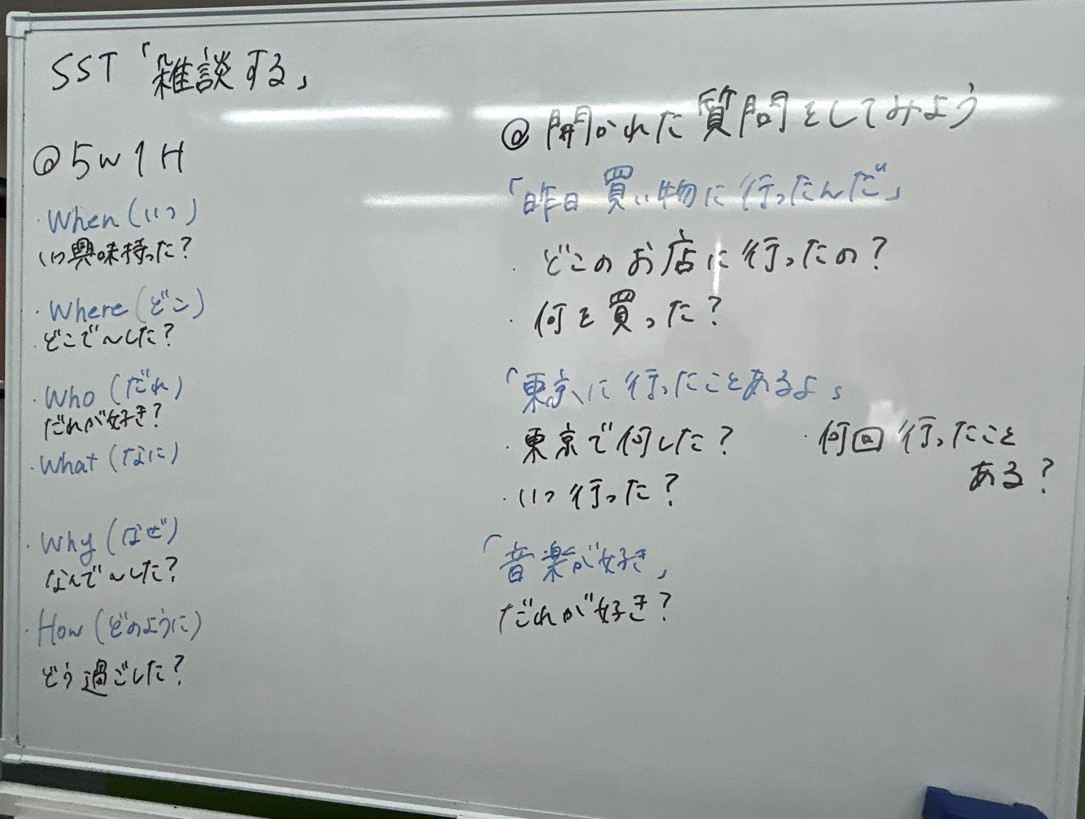 SST「雑談する」
@5W1H
・When(いつ)
いつ興味持った?
・Where(どこ)
どこで〜した?
・Who(だれ)
だれが好き?
・What(なに)
・Why(なぜ)
なんで〜した?
・How(どのように)
どう過ごした?
@開かれた質問をしてみよう
「昨日買い物に行ったんだ」
・どこのお店に行ったの?
・何を買った?
「東京に行ったことあるよ」
・東京で何した?
・いつ行った?
・何回行ったこと
ある?
「音楽が好き」
だれが好き?